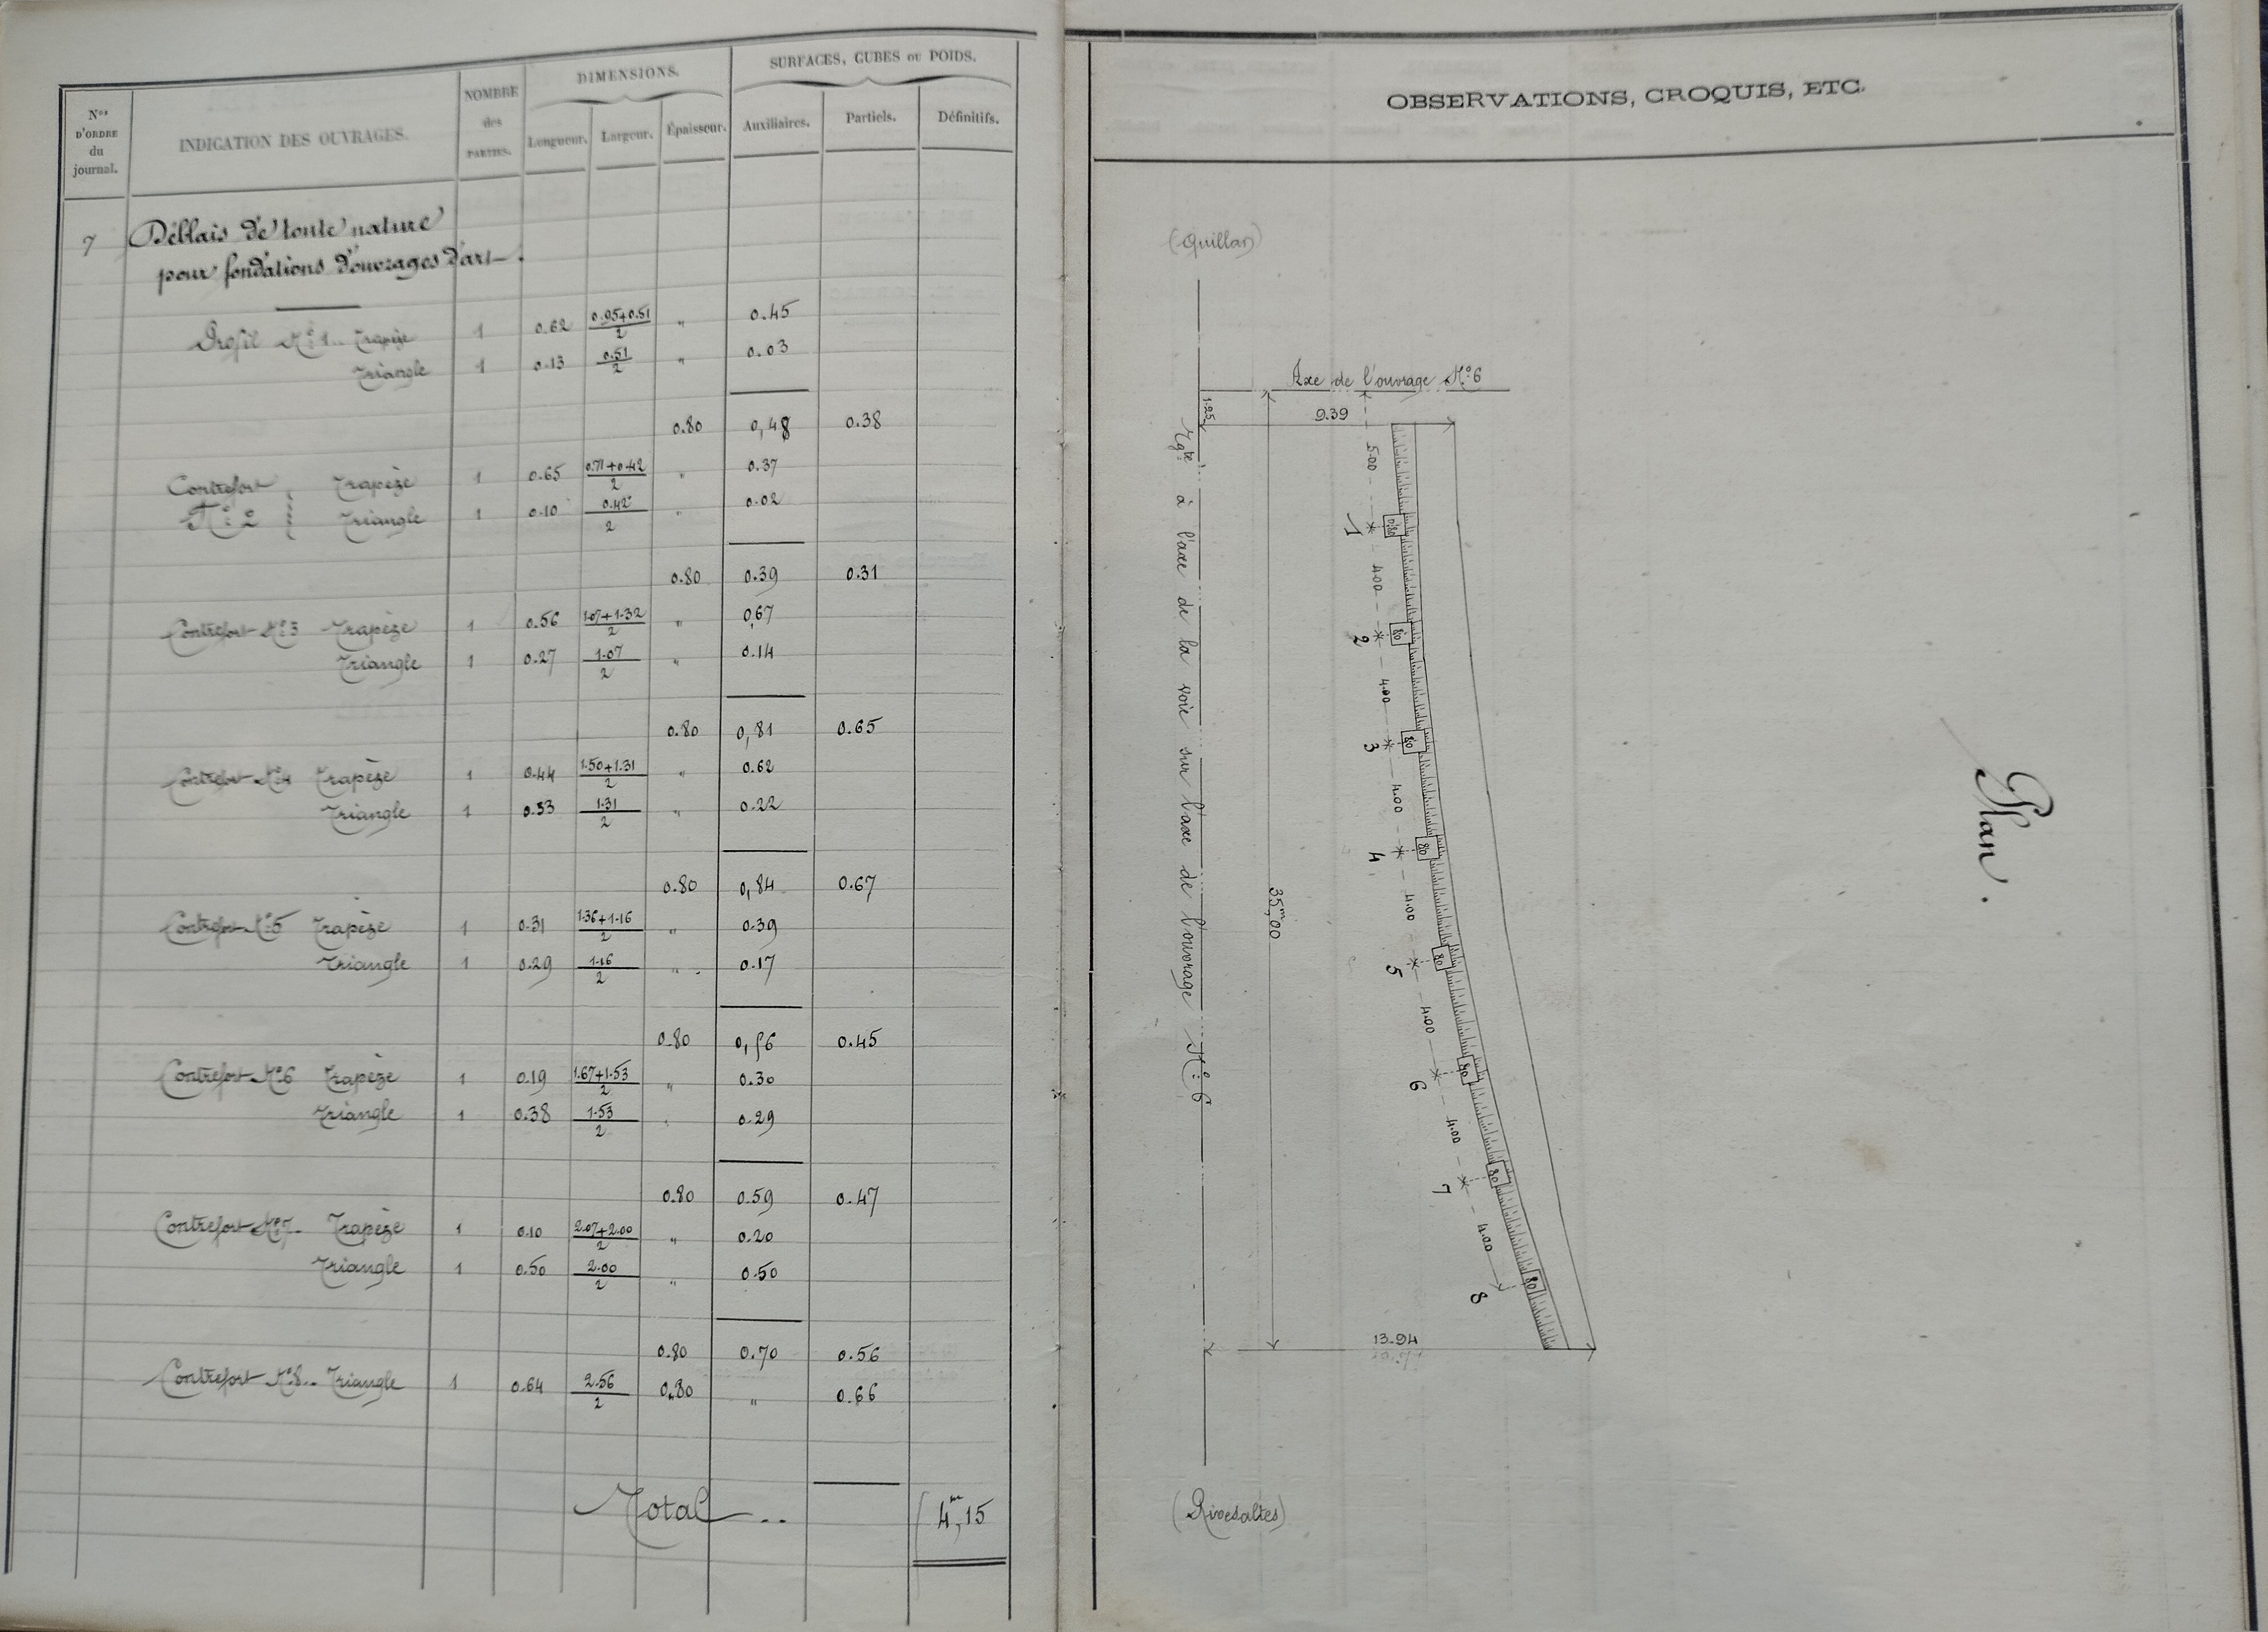 Nos D'ORDRE du journal.
INDICATION DES OUVRAGES.
NOMBRE des PARTIES.
DIMENSIONS.
Longueur. Largeur. Épaisseur.
SURFACES, CUBES ou POIDS.
Auxiliaires. Partiels. Définitifs.
7 Déblais de toute nature
pour fondations d'ouvrages d'art.
Profil N° 1 .. Trapèze 1 0.62 0.95+0.51/2 " 0.45
Triangle 1 0.13 0.51/2 " 0.03
0.80 0,48 0.38
Contrefort Trapèze 1 0.65 0.71+0.42/2 " 0.37
N° 2 Triangle 1 0.10 0.42/2 " 0.02
0.80 0.39 0.31
Contrefort N° 3 Trapèze 1 0.56 1.07+1.32/2 " 0,67
Triangle 1 0.27 1.07/2 " 0.14
0.80 0,81 0.65
Contrefort N° 4 Trapèze 1 0.44 1.50+1.31/2 " 0.62
Triangle 1 0.33 1.31/2 " 0.22
0.80 0,84 0.67
Contrefort N° 5 Trapèze 1 0.31 1.36+1.16/2 " 0.39
Triangle 1 0.29 1.16/2 " 0.17
0.80 0,56 0.45
Contrefort N° 6 Trapèze 1 0.19 1.67+1.53/2 " 0.30
Triangle 1 0.38 1.53/2 " 0.29
0.80 0.59 0.47
Contrefort N° 7 Trapèze 1 0.10 2.07+2.00/2 " 0.20
Triangle 1 0.50 2.00/2 " 0.50
0.80 0.70 0.56
Contrefort N° 8 .. Triangle 1 0.64 2.56/2 0.80 " 0.66
Total .. 4m,15
OBSERVATIONS, CROQUIS, ETC.
(Quillan)
Axe de l'ouvrage N° 6
1.25
9.39
5.00
0.80
1
4.00
80
2
4.00
80
3
4.00
80
4
4.00
80
5
4.00
80
6
4.00
80
7
4.00
80
8
Tgte à l'axe de la voie sur l'axe de l'ouvrage N° 6
35m,00
13.94
(Rivesaltes)
Plan.